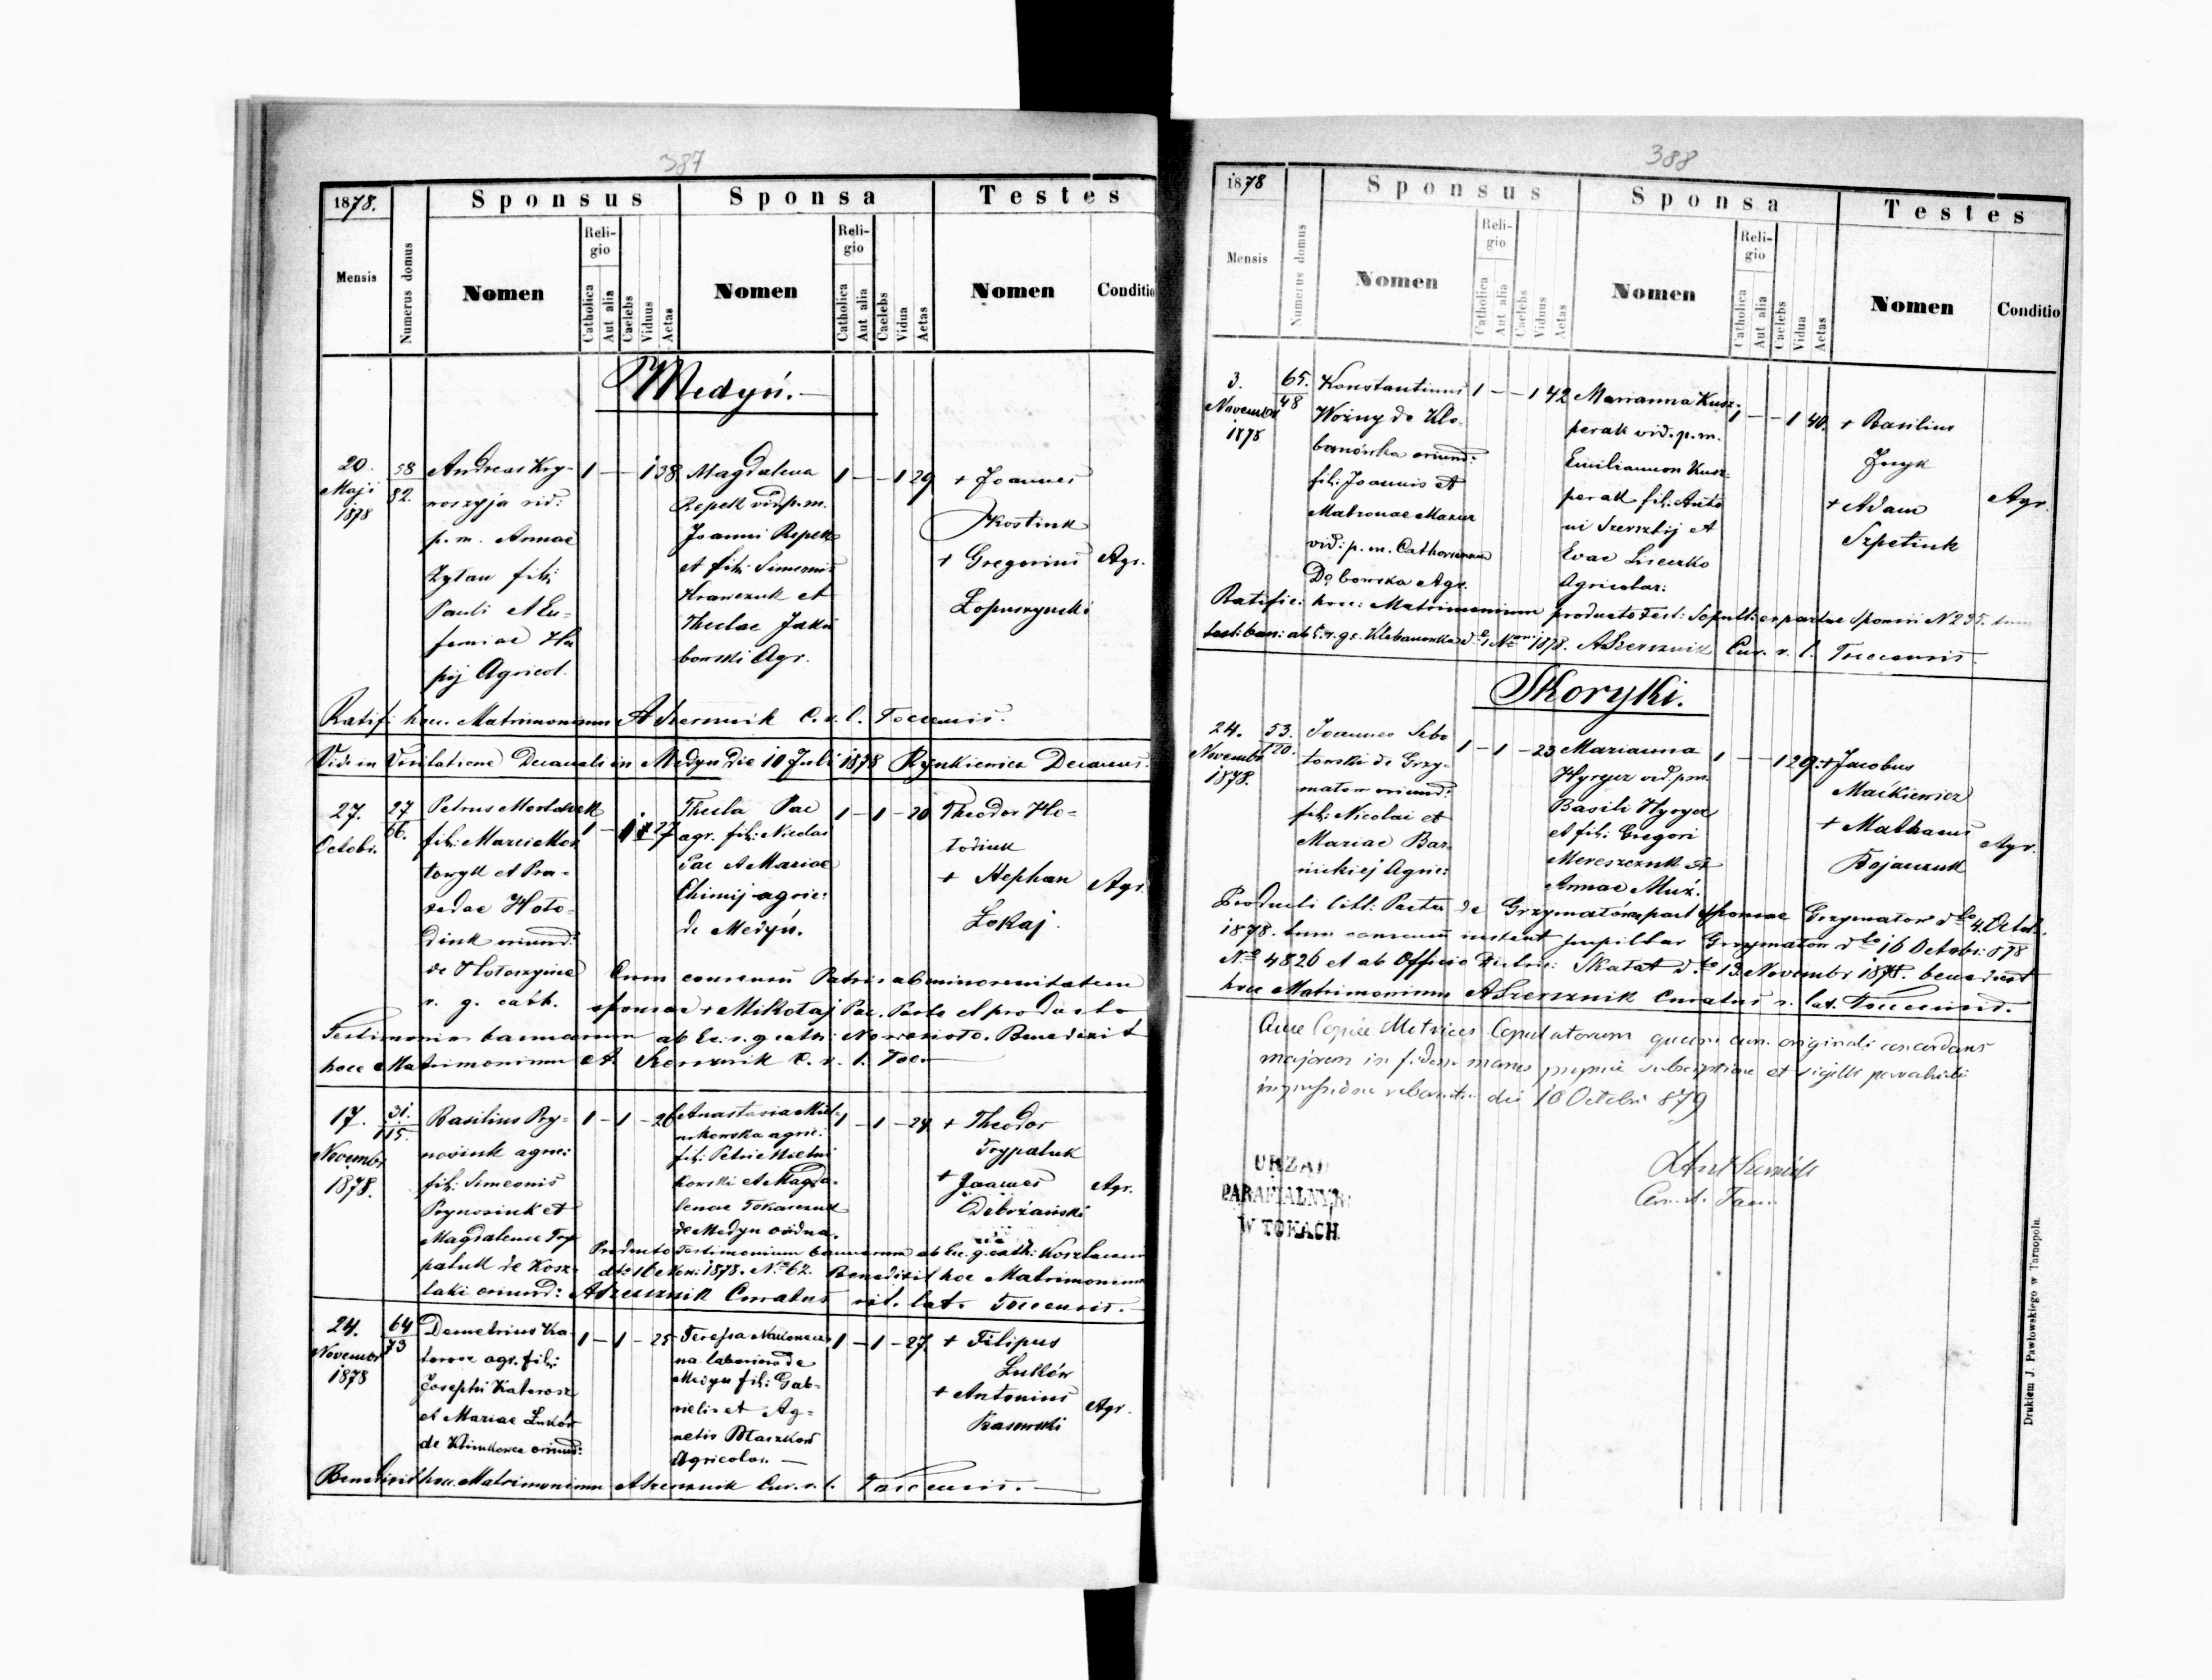 387
1878.
Sponsus
Sponsa
Testes
Mensis
Numerus domus
Nomen
Religio
Catholica
Aut alia
Caelebs
Viduus
Aetas
Nomen
Religio
Catholica
Aut alia
Caelebs
Vidua
Aetas
Nomen
Conditio
Medyń.
20.
Maji
1878
58
82.
Andreas Kry-
woszyja vid:
p. m. Annae
Zytau fil:
Pauli et Eu-
femiae Hu
pij Agricol.
1 — — 1 38
Magdalena
Repek vid. p. m.
Joanni Repek
et fil: Simeonis
Krawczuk et
Theclae Jaku
bowski Agr.
1 — — 1 29
+ Joannes
Kostiuk
+ Gregorius
Łopuszynski
Agr.
Ratif: hocc. Matrimonium A Szersznik C. r. l. Toccensis.
Vidi in Visitatione Decanali in Medyn die 10 Juli 1878 Rynkiewicz Decanus.
27.
Octobr.
27
66.
fil: Marci Mos
towyk et Pra-
xedae Hoło-
diuk oriund:
de Hołoszynce
r. g. cath.
27
Thecla Pac
agr. fil: Nicolai
Pac et Mariae
Chimij agric:
de Medyń.
1 — 1 — 20
Theodor Ho-
łodiuk
+ Stephan
Łokaj.
Agr.
Cum consensu Patris ab minorenitatem
sponsae + Mikołaj Pac. Pacto et producto
Testimonio bannorum ab Ec. r. g. cath: Nowesioło. Benedixit
hocc Matrimonium A Szersznik C. r. l. Toc.
17.
Novembr
1878.
31.
115.
Basilius Pry-
nosiuk agric:
fil: Simeonis
Prynosiuk et
Magdalenae Try
paluk de Kosz-
laki oriund:
1 — 1 — 26
Anastasia Miel-
nikowska agric:
fil: Petri Mielni
kowski et Magda-
lenae Tokarczuk
de Medyn oriunda.
1 — 1 — 24
+ Theodor
Trypaluk
+ Joannes
Debrżański
Agr.
Producto Testimonium bannorum ab Ec. g. cath: Koszlacensi
dto 16 Nov: 1878. No 62. Benedixit hoc Matrimonium
A Szersznik Curatus rit. lat. Toccensis.
24.
Novembr
1878
64
73
Demetrius Ka-
torosz agr. fil:
Josephi Katorosz
et Mariae Łuków
de Klimkowce oriund:
1 — 1 — 25
Teressa
na laboriosa de
Medyn fil: Gab-
rielis et Ag-
netis Błaszków
Agricolar. —
1 — 1 — 27
+ Filipus
Łuków
+ Antonius
Agr.
Benedixit hoc. Matrimonium A Szersznik Cur. r. l. Toccensis. —
388
1878
Sponsus
Sponsa
Testes
Mensis
Numerus domus
Nomen
Religio
Catholica
Aut alia
Caelebs
Viduus
Aetas
Nomen
Religio
Catholica
Aut alia
Caelebs
Vidua
Aetas
Nomen
Conditio
3.
Novembr
1878
65.
48
Konstantinus
Woźny de Kle-
banówka oriund:
fil: Joannis et
Matronae Mazur
vid: p. m. Catharinam
Dąbowska Agr.
1 — — 1 42
Marianna Kusz-
perak vid. p. m.
Emilianum Kusz-
perak fil: Anto
ni Szersztij et
Evae Liseczko
Agricolar:
1 — — 1 40.
+ Basilius
+ Adam
Szpetiuk
Agr.
Ratific: hocc: Matrimonium producto Test: Sepult: ex partae Sponsi N 235. tum
test: ban: ab E. r. g. c. Klebanowka 1878. A Szersznik Cur. r. l. Toccensis.
Skoryki.
24.
Novembr
1878.
53.
120.
Joannes Sebo
towski de Grzy-
małow oriund:
fil: Nicolai et
Mariae Bar-
nickiej Agric:
1 — 1 — 23
Marianna
Hyryez vid. p. m.
Basili Hyryez
et fil: Gregori
Mereszczuk et
Annae Muż.
1 — — 1 29
+ Jacobus
Maćkiewicz
+ Mathaeus
Bojaczuk
Agr.
Producti litt: Pactu de Grzymałów part Sponsae Grzymałow dto 4. Octob.
1878. tum consensu instant pupillar Grzymałow dto 16 Octobr: 878
No 4826 et ab Officio District: Skałat dto 13 Novembr 1878. benedixit
hocc Matrimonium A Szersznik Curatus r. lat. Toccensis.
Quae Copia Metrices Copulatorum quum cum originali concordans
majorem in fidem manus propriae subscriptione et sigilli parochialis
die 10 Octobri 879
URZĄD
PARAFIALNY
W TOKACH
Drukiem J. Pawłowskiego w Tarnopolu.